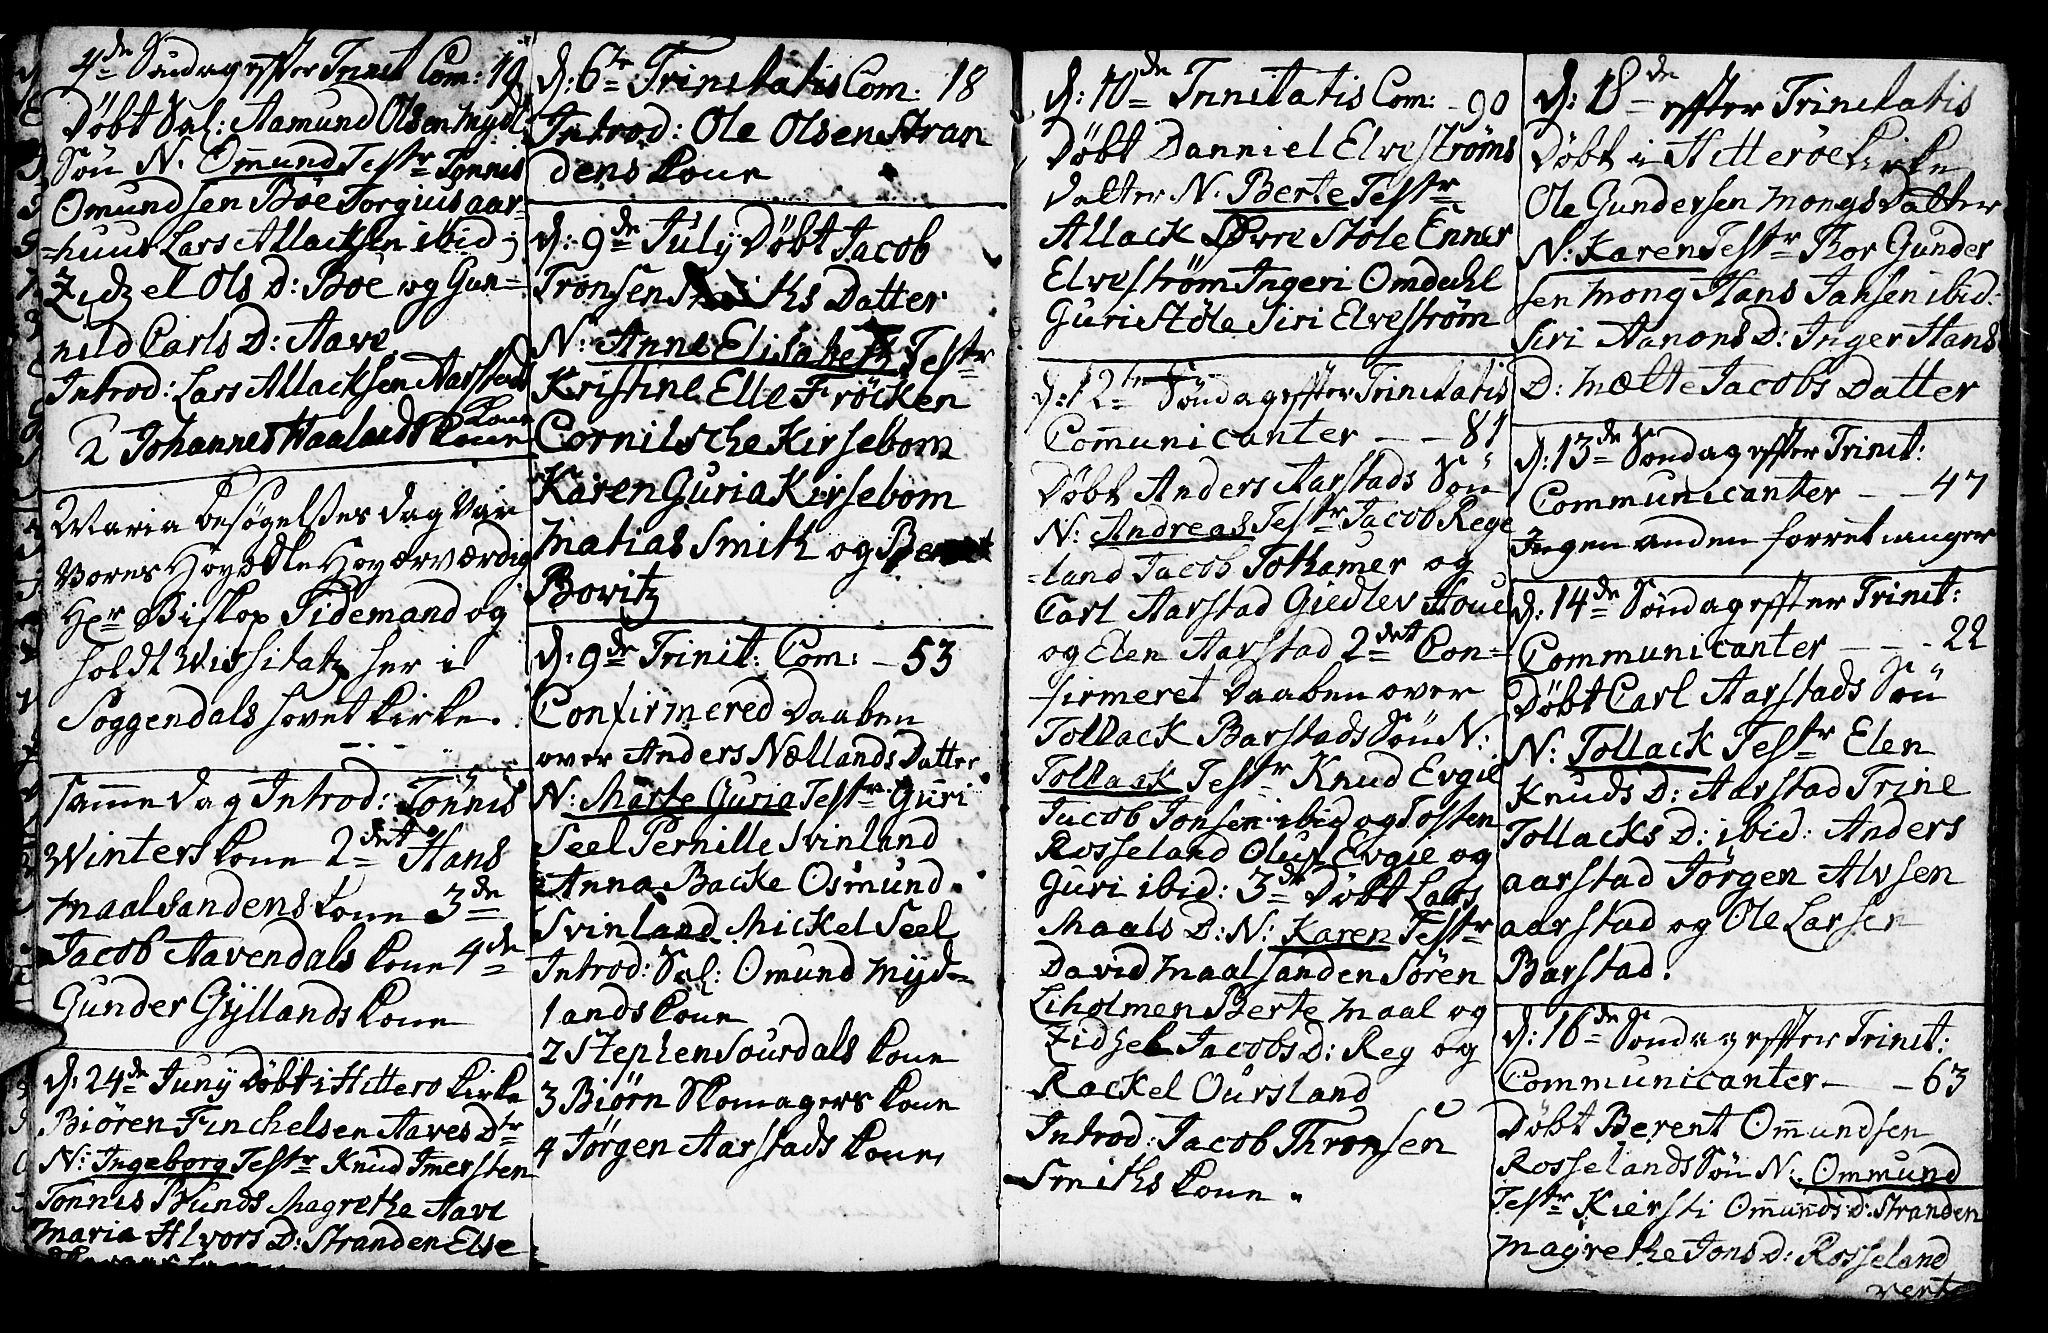 4de Söndag effter Trinit Com: 19
Döbt Sal: Aamund Olsen Mydl
Sön N: Omund Testr Tönnis
Omundsen Böe Torgius aar
=huus Lars Allacksen ibid;
Zidzel Ols D: Böe og Gun=
nild Carls D: Aave
Introd: Lars Allacksen Aarstads
Kone
2 Johannes Haalands Kone
Maria Besögelses Dag Var
Vores Höyædle Höyærværdig
Hr Biskop Tidemand og
holdt Wissitatz her i
Soggendals hovet Kirke.
Samme dag Introd: Tönnis
Winters Kone 2det Hans
Maalsandens Kone 3de
Jacob Aavendals Kone 4de
Gunder Gyllands Kone
d: 24de Juny Döbt i Hitterö Kirke
Biören Finchelsen Aaves Dtr
N: Ingeborg Testr Knud Imersten
Tönnis Bunds Magrethe Aave
Maria Alvors D: Stranden Else
d: 6te Trinitatis Com: 18
Introd: Ole Olsen Stran
dens Kone
d: 9de July Döbt Jacob
Tronsen Smiths Datter
N: Anne Elisabeth Testr
Kristine Elle Fröcken
Cornilsche Kirsebom
Karen Guria Kirsebom
Matias Smith og Berent
Bovitz
d: 9de Trinit: Com: - 53
Confirmered Daaben
over Anders Nællands Datter
N: Marte Guria Testr Guri
Seel Pernille Svinland
Anna Backe Osmund
Svinland Mickel Seel
Introd: Sal: Omund Myd=
lands Kone
2 Stephen Sourdals Kone
3 Biørn Skomagers Kone
4 Jørgen Aarstads Kone
d: 10de Trinitatis Com: - 90
Döbt Danniel Elveströms
Datter N: Berte Testr
Allack Övre Stöle Enner
Elveström Ingeri Omdahl
Guri Stöle Siri Elveström
d: 12te Söndag effter Trinitatis
Communicanter - - 81
Döbt Anders Aarstads Sön
N: Andreas Testr Jacob Rege
=land Jacob Tothamer og
Carl Aarstad Giedlev Houe
og Elen Aarstad 2det Con=
firmeret Daaben over
Tollack Barstads Sön N:
Tollack Testr Knud Evgie
Jacob Jonsen ibid og Tosten
Rosseland Oluf Evgie og
Guri ibid: 3de Döbt Lars
Maals D: N: Karen Testr
David Maalsanden Sören
Liholmen Berte Maal og
Zidsel Jacobs D: Reg og
Rackel Oursland
Introd: Jacob Thronsen
Smiths Kone.
d: 18de effter Trinitatis
Döbt i Hitteröe Kirke
Ole Gundersen Mongs Datter
N: Karen Testr Thor Gunder
sen Mong Hans Jansen ibid:
Siri Aanons D: Inger Hans
D: Mætte Jacobs Datter
d: 13de Söndag effter Trinit:
Communicanter - - 47
Ingen anden forretninger
d: 14de Söndag effter Trinit:
Communicanter - - - 22
Döbt Carl Aarstads Sön
N: Tollack Testr Elen
Knuds D: Aarstad Trine
Tollacks D: ibid: Anders
aarstad Jörgen Alvsen
aarstad og Ole Larsen
Barstad.
d: 16de Söndag effter Trinit:
Communicanter - - 63
Döbt Berent Ommundsen
Rosselands Sön N: Ommund
Testr Kiersti Ommunds D: Stranden
Magrethe Jons D: Rosseland
verte